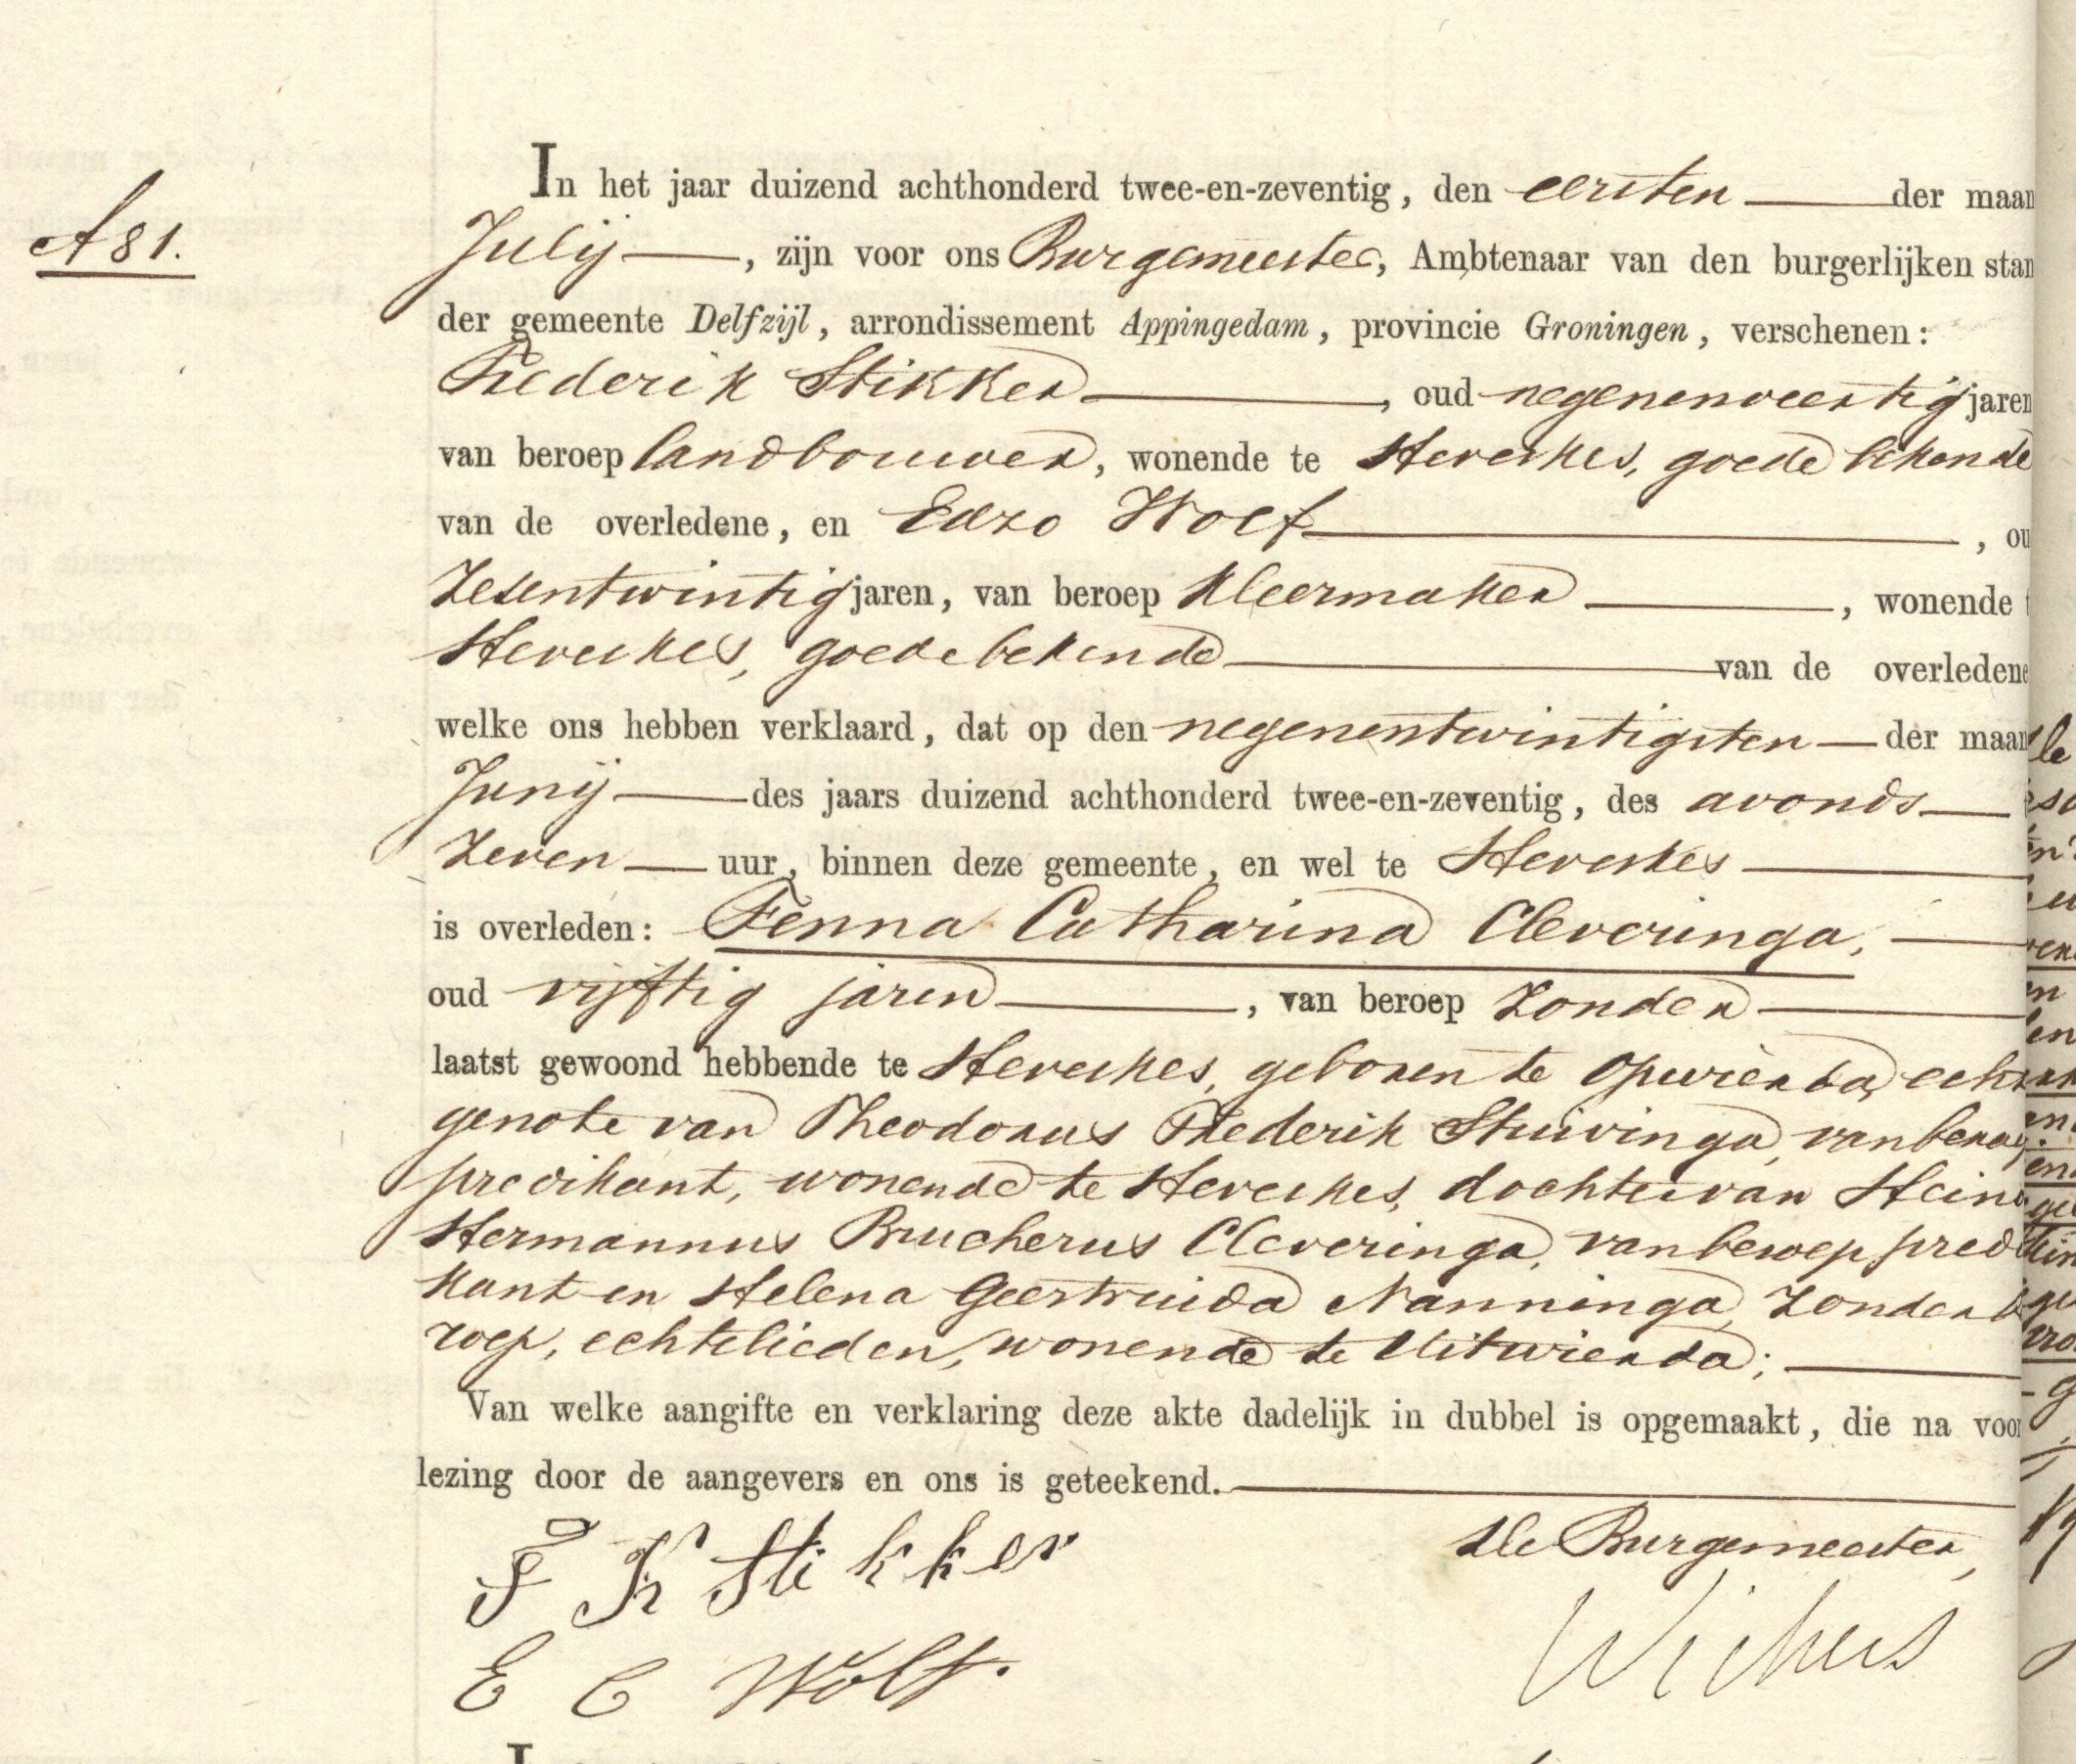 A 81.
In het jaar duizend achthonderd twee-en-zeventig, den eersten der maan
Julij, zijn voor ons Burgemeester, Ambtenaar van den burgerlijken stan
der gemeente Delfzijl, arrondissement Appingedam, provincie Groningen, verschenen:
Frederik Stikker, oud negenenveertig jaren
van beroep landbouwer, wonende te Heveskes, goede bekende
van de overledene, en Edzo Wolf, ou
Zesentwintig jaren, van beroep Kleermaker, wonende t
Heveskes, goede bekende van de overledene
welke ons hebben verklaard, dat op den negenentwintigsten der maan
Junij des jaars duizend achthonderd twee-en-zeventig, des avonds
Zeven uur, binnen deze gemeente, en wel te Heveskes
is overleden: Fenna Catharina Cleveringa,
oud vijftig jaren, van beroep Zonder
laatst gewoond hebbende te Heveskes, geboren te Opwierda, echt
genote van Theodorus Frederik Stuivinga, van beroep
predikant, wonende te Heveskes, dochter van Hein
Hermannus Brucherus Cleveringa, van beroep predi
kant en Helena Geertruida Nanninga, Zonder be
roep, echtelieden, wonende te Uitwierda;
Van welke aangifte en verklaring deze akte dadelijk in dubbel is opgemaakt, die na voor
lezing door de aangevers en ons is geteekend.
F K Stikker
De Burgemeester,
Wichers
E C Wolf.